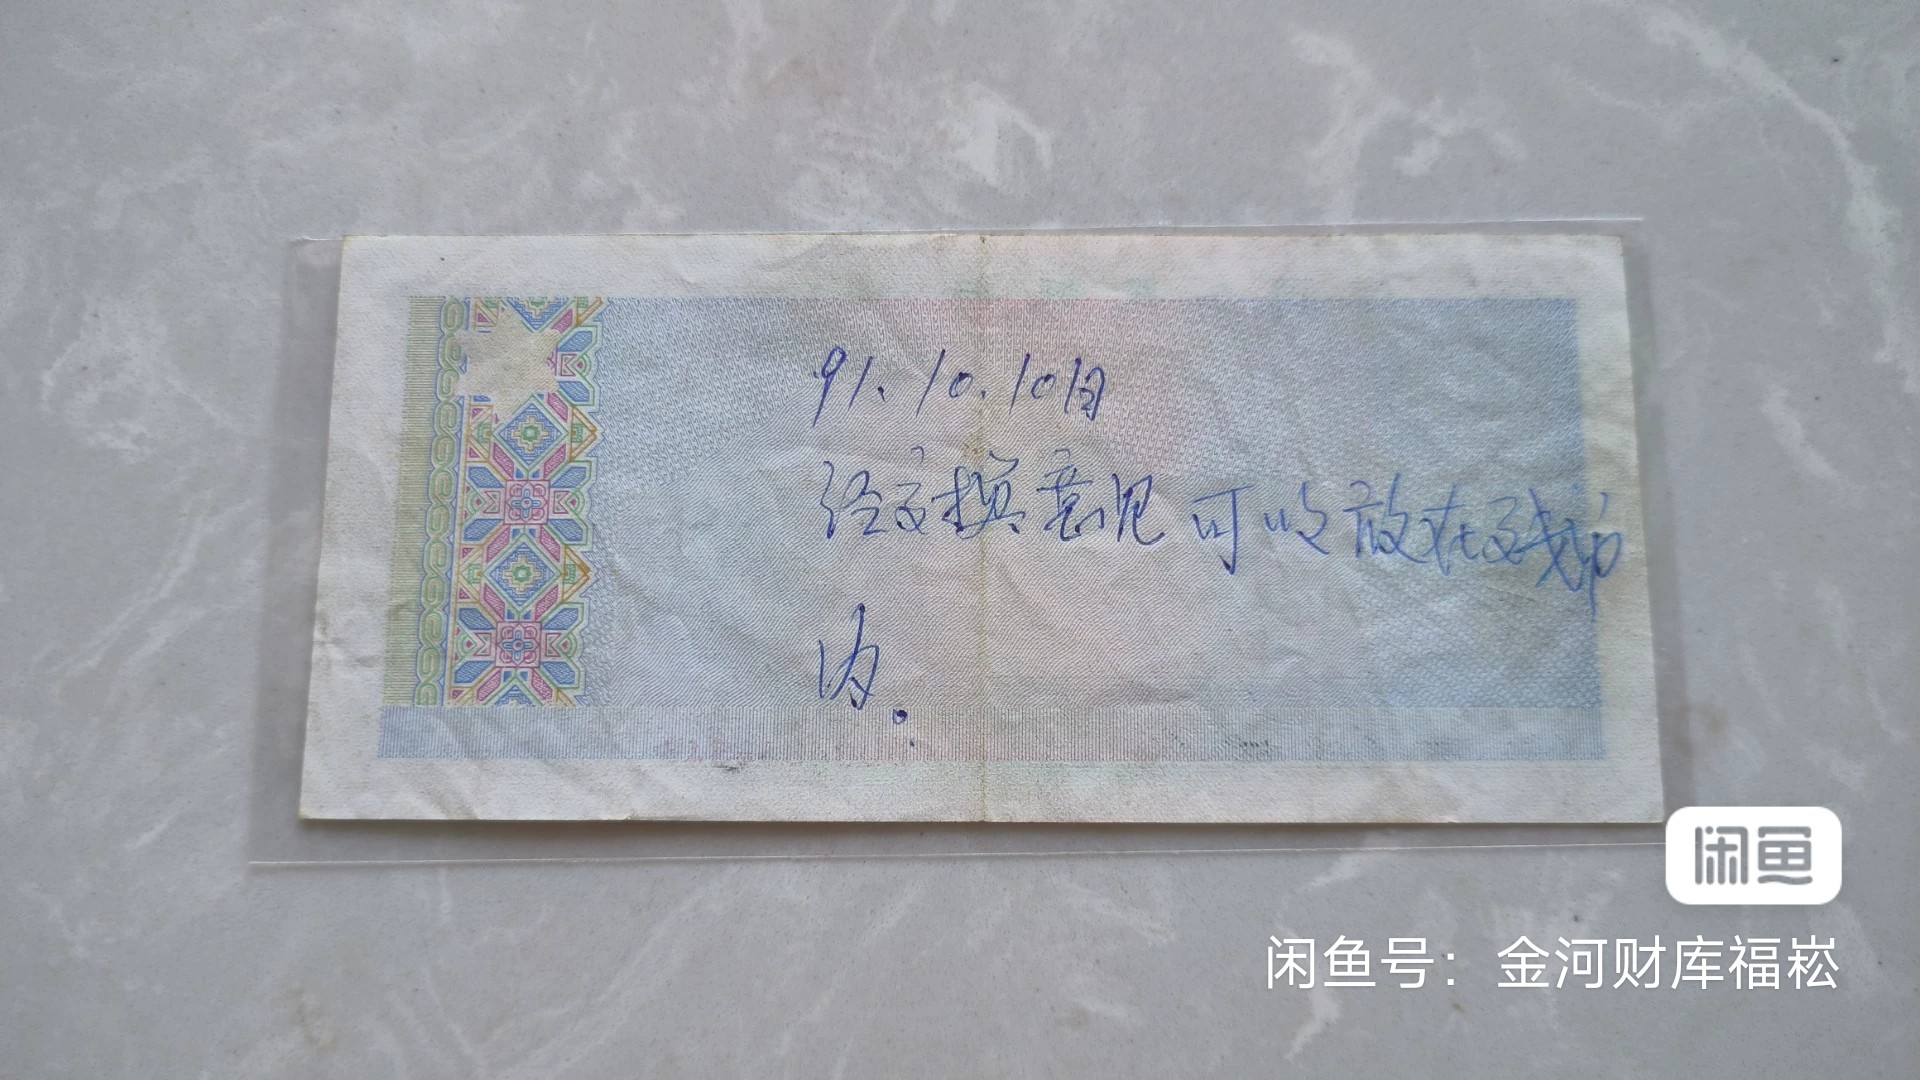 91.10.10日
经交换意见可以放在残币
内.
闲鱼
闲鱼号：金河财库福崧